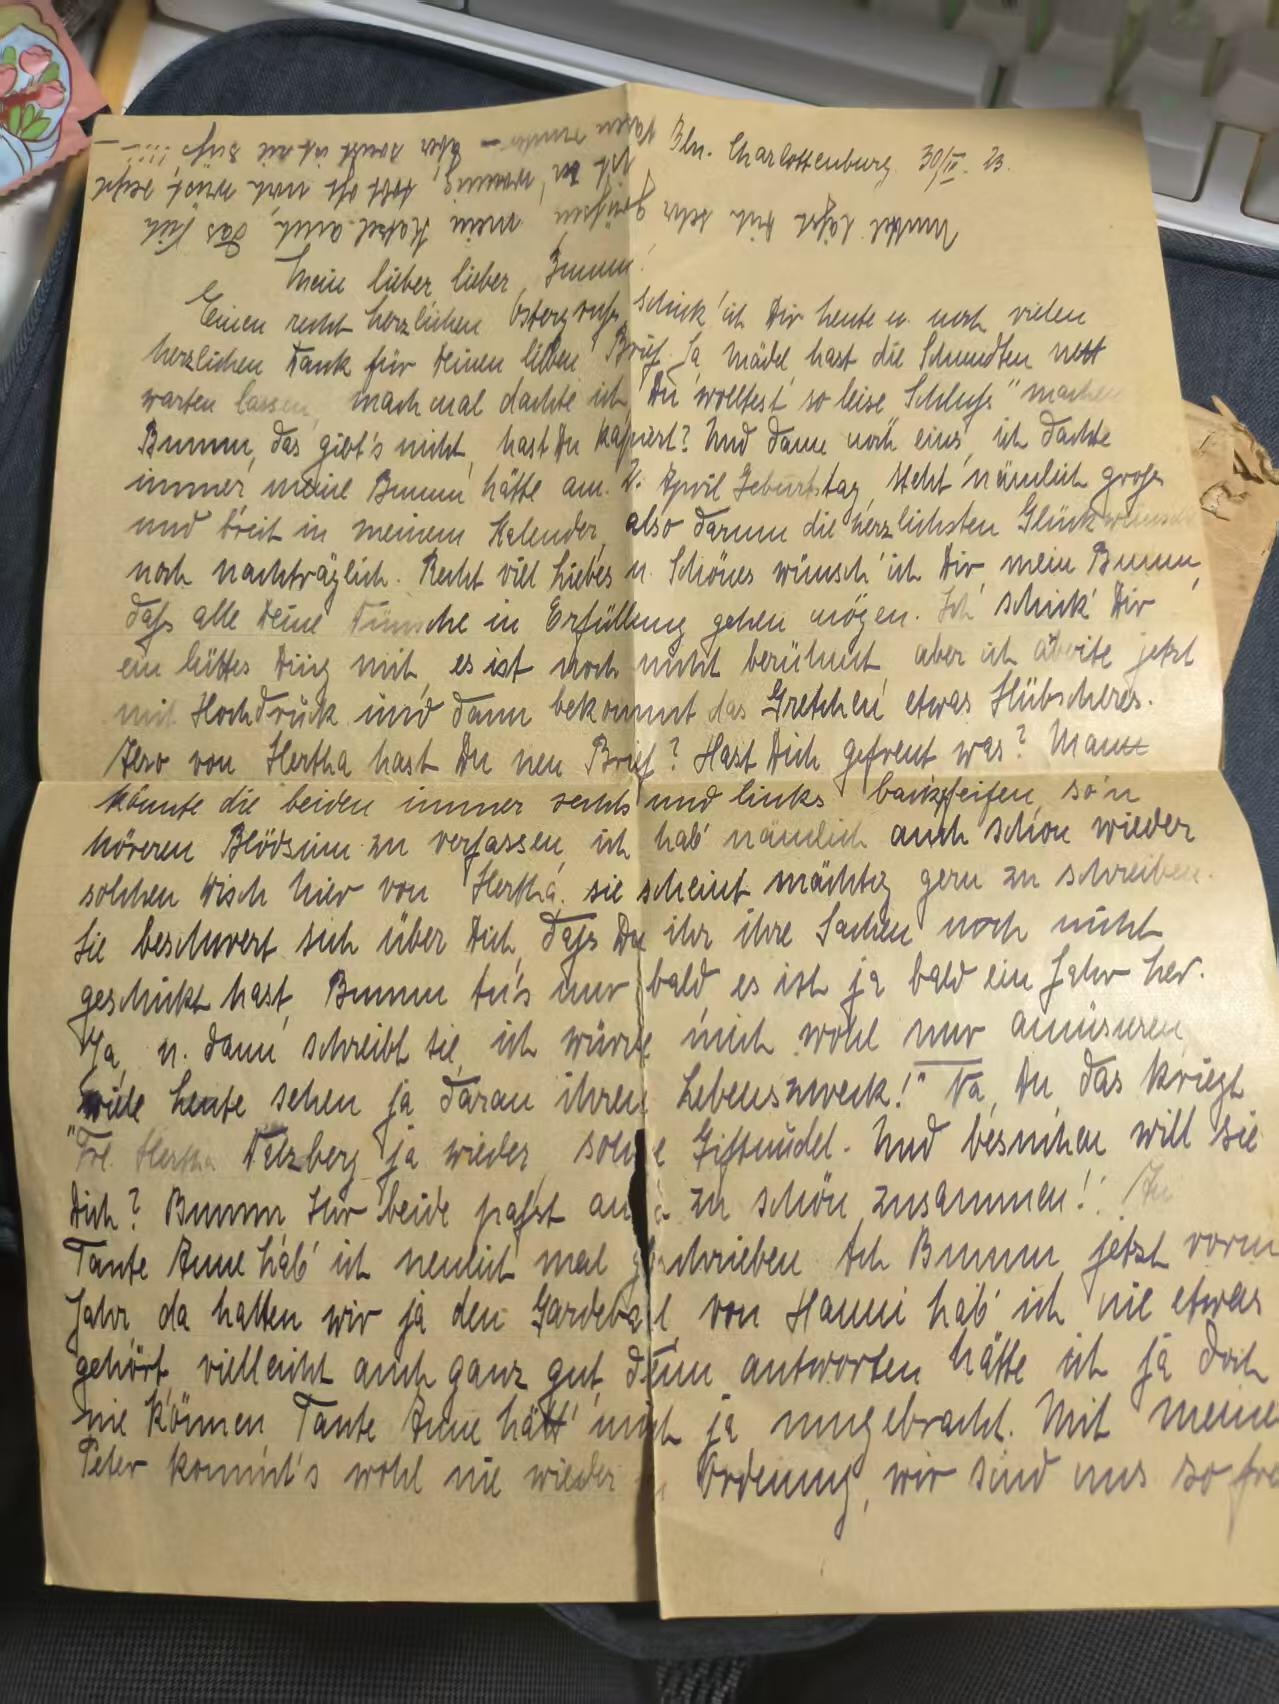 Bln. Charlottenburg 30/II. 23.
Mein lieber lieber Bumm!
Einen recht herzlichen Ostergruß schick' ich Dir heute u. noch vielen
herzlichen Dank für Deinen lieben Brief. Ja Mädel hast die Schmidten nett
warten lassen, manchmal dachte ich, Du wolltest so leise „Schluß" machen
Bumm, das giebt's nicht, hast Du kapiert? Und dann noch eins, ich dachte
immer meine Bumm hätte am 2. April Geburtstag, steht nämlich groß
und breit in meinem Kalender, also darum die herzlichsten Glückwünsche
noch nachträglich. Recht viel Liebes u. Schönes wünsch' ich Dir, mein Bumm,
daß alle Deine Wünsche in Erfüllung gehen mögen. Ich schick' Dir
ein Ding mit, es ist noch nicht berühmt, aber ich arbeite jetzt
mit Hochdruck und dann bekommt das Gretchen etwas Hübscheres.
Also von Hertha hast Du nen Brief? Hast Dich gefreut was? Mann
könnte die beiden immer rechts und links backpfeifen, so'n
höheren Blödsinn zu verfassen, ich hab' nämlich auch schon wieder
solchen Wisch hier von Hertha, sie scheint mächtig gern zu schreiben.
Sie beschwert sich über Dich, daß Du ihr ihre Sachen noch nicht
geschickt hast, Bumm tu's nur bald es ist ja bald ein Jahr her.
Ja, u. dann schreibt sie, ich würde mich wohl nur amüsieren,
"viele Leute sehen ja daran ihren Lebenszweck!" Na, Du, das kriegt
"Frl. Hertha ja wieder, solche Giftnudel. Und besuchen will sie
Dich? Bumm, Ihr beide paßt auch zu schön zusammen! An
Tante Anne hab' ich neulich mal geschrieben. Ach Bumm, jetzt vorm
Jahr, da hatten wir ja den von Hanni hab' ich nie etwas
gehört, vielleicht auch ganz gut, denn antworten hätte ich ja doch
nie können Tante Anne hätt' mich ja umgebracht. Mit meinem
Peter kommt's wohl nie wieder in Ordnung, wir sind uns so
Mutter läßt Dich sehr grüßen, mein auch, das